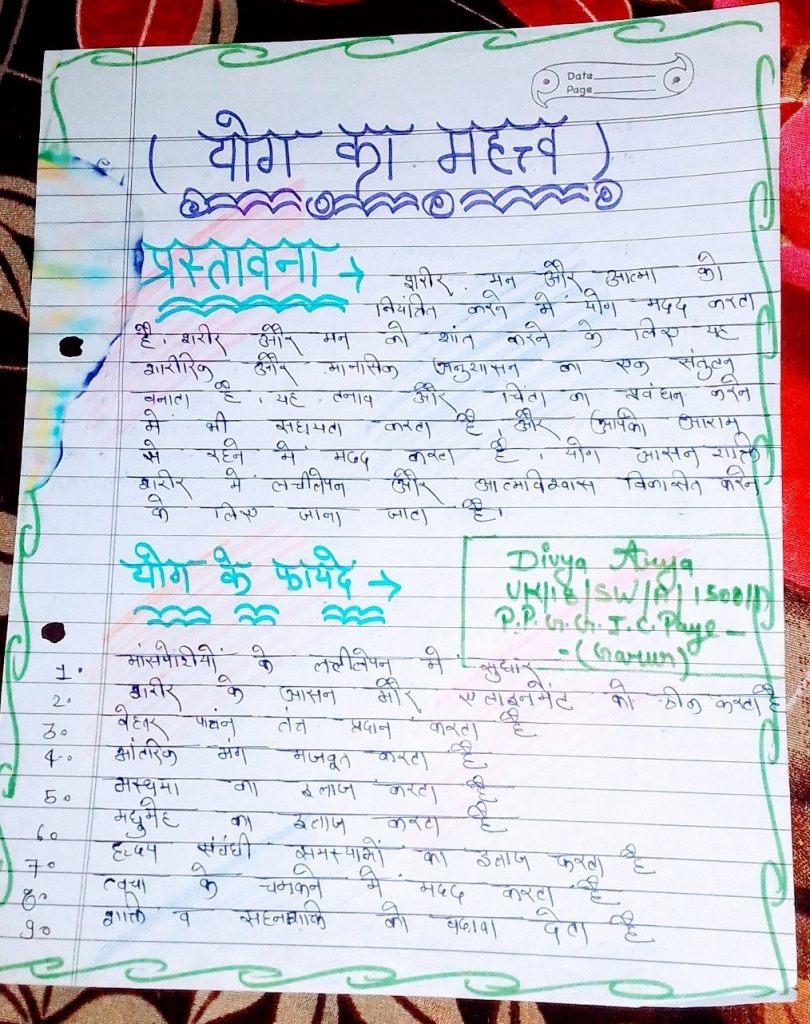 Date
Page
( योग का महत्त्व )
प्रस्तावना → शरीर, मन और आत्मा को
नियंत्रित करने में योग मदद करता
है. शरीर और मन को शांत करने के लिए यह
शारीरिक और मानसिक अनुशासन का एक संतुलन
बनाता है. यह तनाव और चिंता का प्रबंधन करने
में भी सहायता करता है, और आपको आराम
से रहने में मदद करता है. योग आसन शक्ति
शरीर में लचीलेपन और आत्मविश्वास विकसित करने
के लिए जाना जाता है।
योग के फायदे →
Divya Arya
UK/18/SW/A/
P.P. G.G.I.C. Paye -
- (Garur)
1. मांसपेशीयों के लचीलेपन में सुधार
2. शरीर के आसन और एलाइनमेंट को ठीक करता है
3. बेहतर पाचन तंत्र प्रदान करता है
4. आंतरिक अंग मजबूत करता है
5. अस्थमा का इलाज करता है
6. मधुमेह का इलाज करता है
7. हृदय संबंधी समस्याओं का इलाज करता है
8. त्वचा के चमकने में मदद करता है
9. शक्ति व सहनशक्ति को बढ़ावा देता है